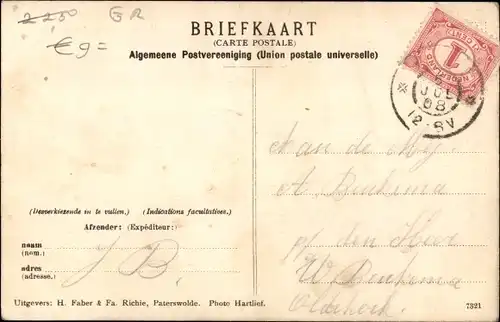 2250
GR
€9=
BRIEFKAART
(CARTE POSTALE)
Algemeene Postvereeniging (Union postale universelle)
NEDERLAND
1
CENT
JUL
08
12-8V
Aan de
A
p/ den Heer
W
(Desverkiezende in te vullen.) (Indications facultatives.)
Afzender: (Expéditeur:)
naam
(nom.:
adres
(adresse.:
J B.
Uitgevers: H. Faber & Fa. Richie, Paterswolde. Photo Hartlief.
7321